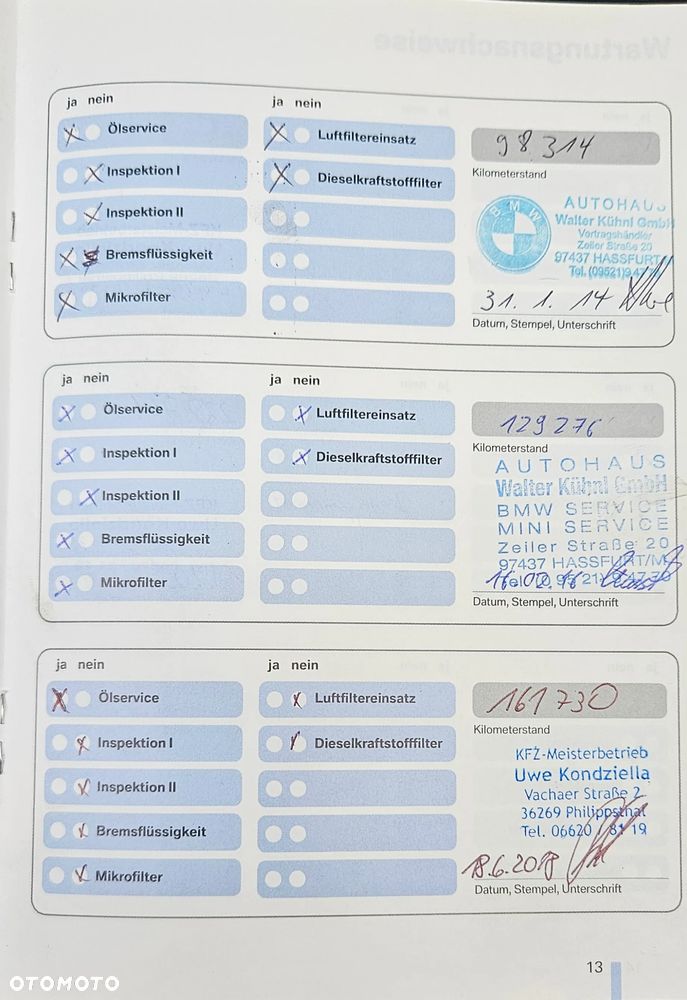 Wartungsnachweise
ja nein
Ölservice
Inspektion I
Inspektion II
Bremsflüssigkeit
Mikrofilter
ja nein
Luftfiltereinsatz
Dieselkraftstofffilter
98.314
Kilometerstand
BMW
AUTOHAUS
Walter Kühnl GmbH
Vertragshändler
Zeiler Straße 20
97437 HASSFURT/M
Tel. (09521)
31. 1. 14
Datum, Stempel, Unterschrift
ja nein
Ölservice
Inspektion I
Inspektion II
Bremsflüssigkeit
Mikrofilter
ja nein
Luftfiltereinsatz
Dieselkraftstofffilter
129276
Kilometerstand
AUTOHAUS
Walter Kühnl GmbH
BMW SERVICE
MINI SERVICE
Zeiler Straße 20
97437 HASSFURT/M
16.02.16
Datum, Stempel, Unterschrift
ja nein
Ölservice
Inspektion I
Inspektion II
Bremsflüssigkeit
Mikrofilter
ja nein
Luftfiltereinsatz
Dieselkraftstofffilter
161730
Kilometerstand
KFZ-Meisterbetrieb
Uwe Kondziella
Vachaer Straße 2
36269 Philippsthal
Tel. 06620 / 81 19
18.6.2018
Datum, Stempel, Unterschrift
13
OTOMOTO